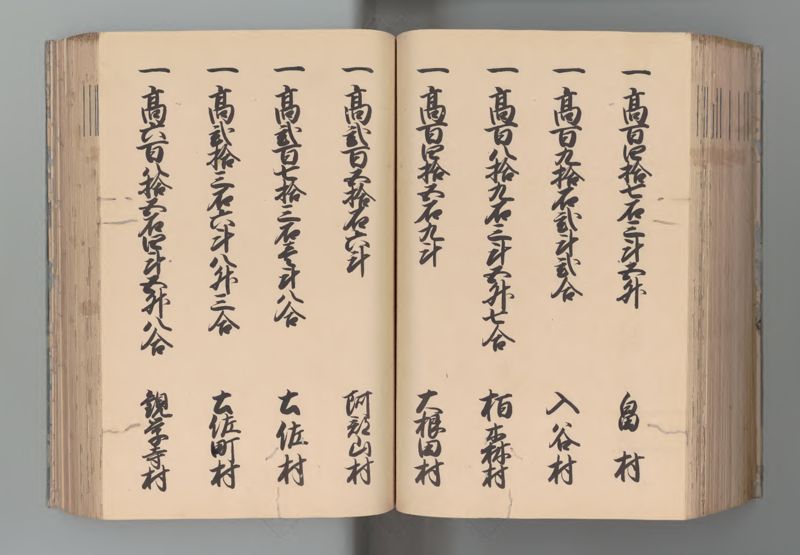 一 高百四拾七石三斗五升 畠村
一 高百九拾石弐斗弐合 入谷村
一 高百八拾九石三斗五升七合 栢森村
一 高百四拾五石九斗 大根田村
一 高弐百五拾石六斗 阿部山村
一 高弐百七拾三石壱斗八合 土佐村
一 高弐拾三石六斗八升三合 土佐町村
一 高六百八拾五石四斗五升八合 観学寺村